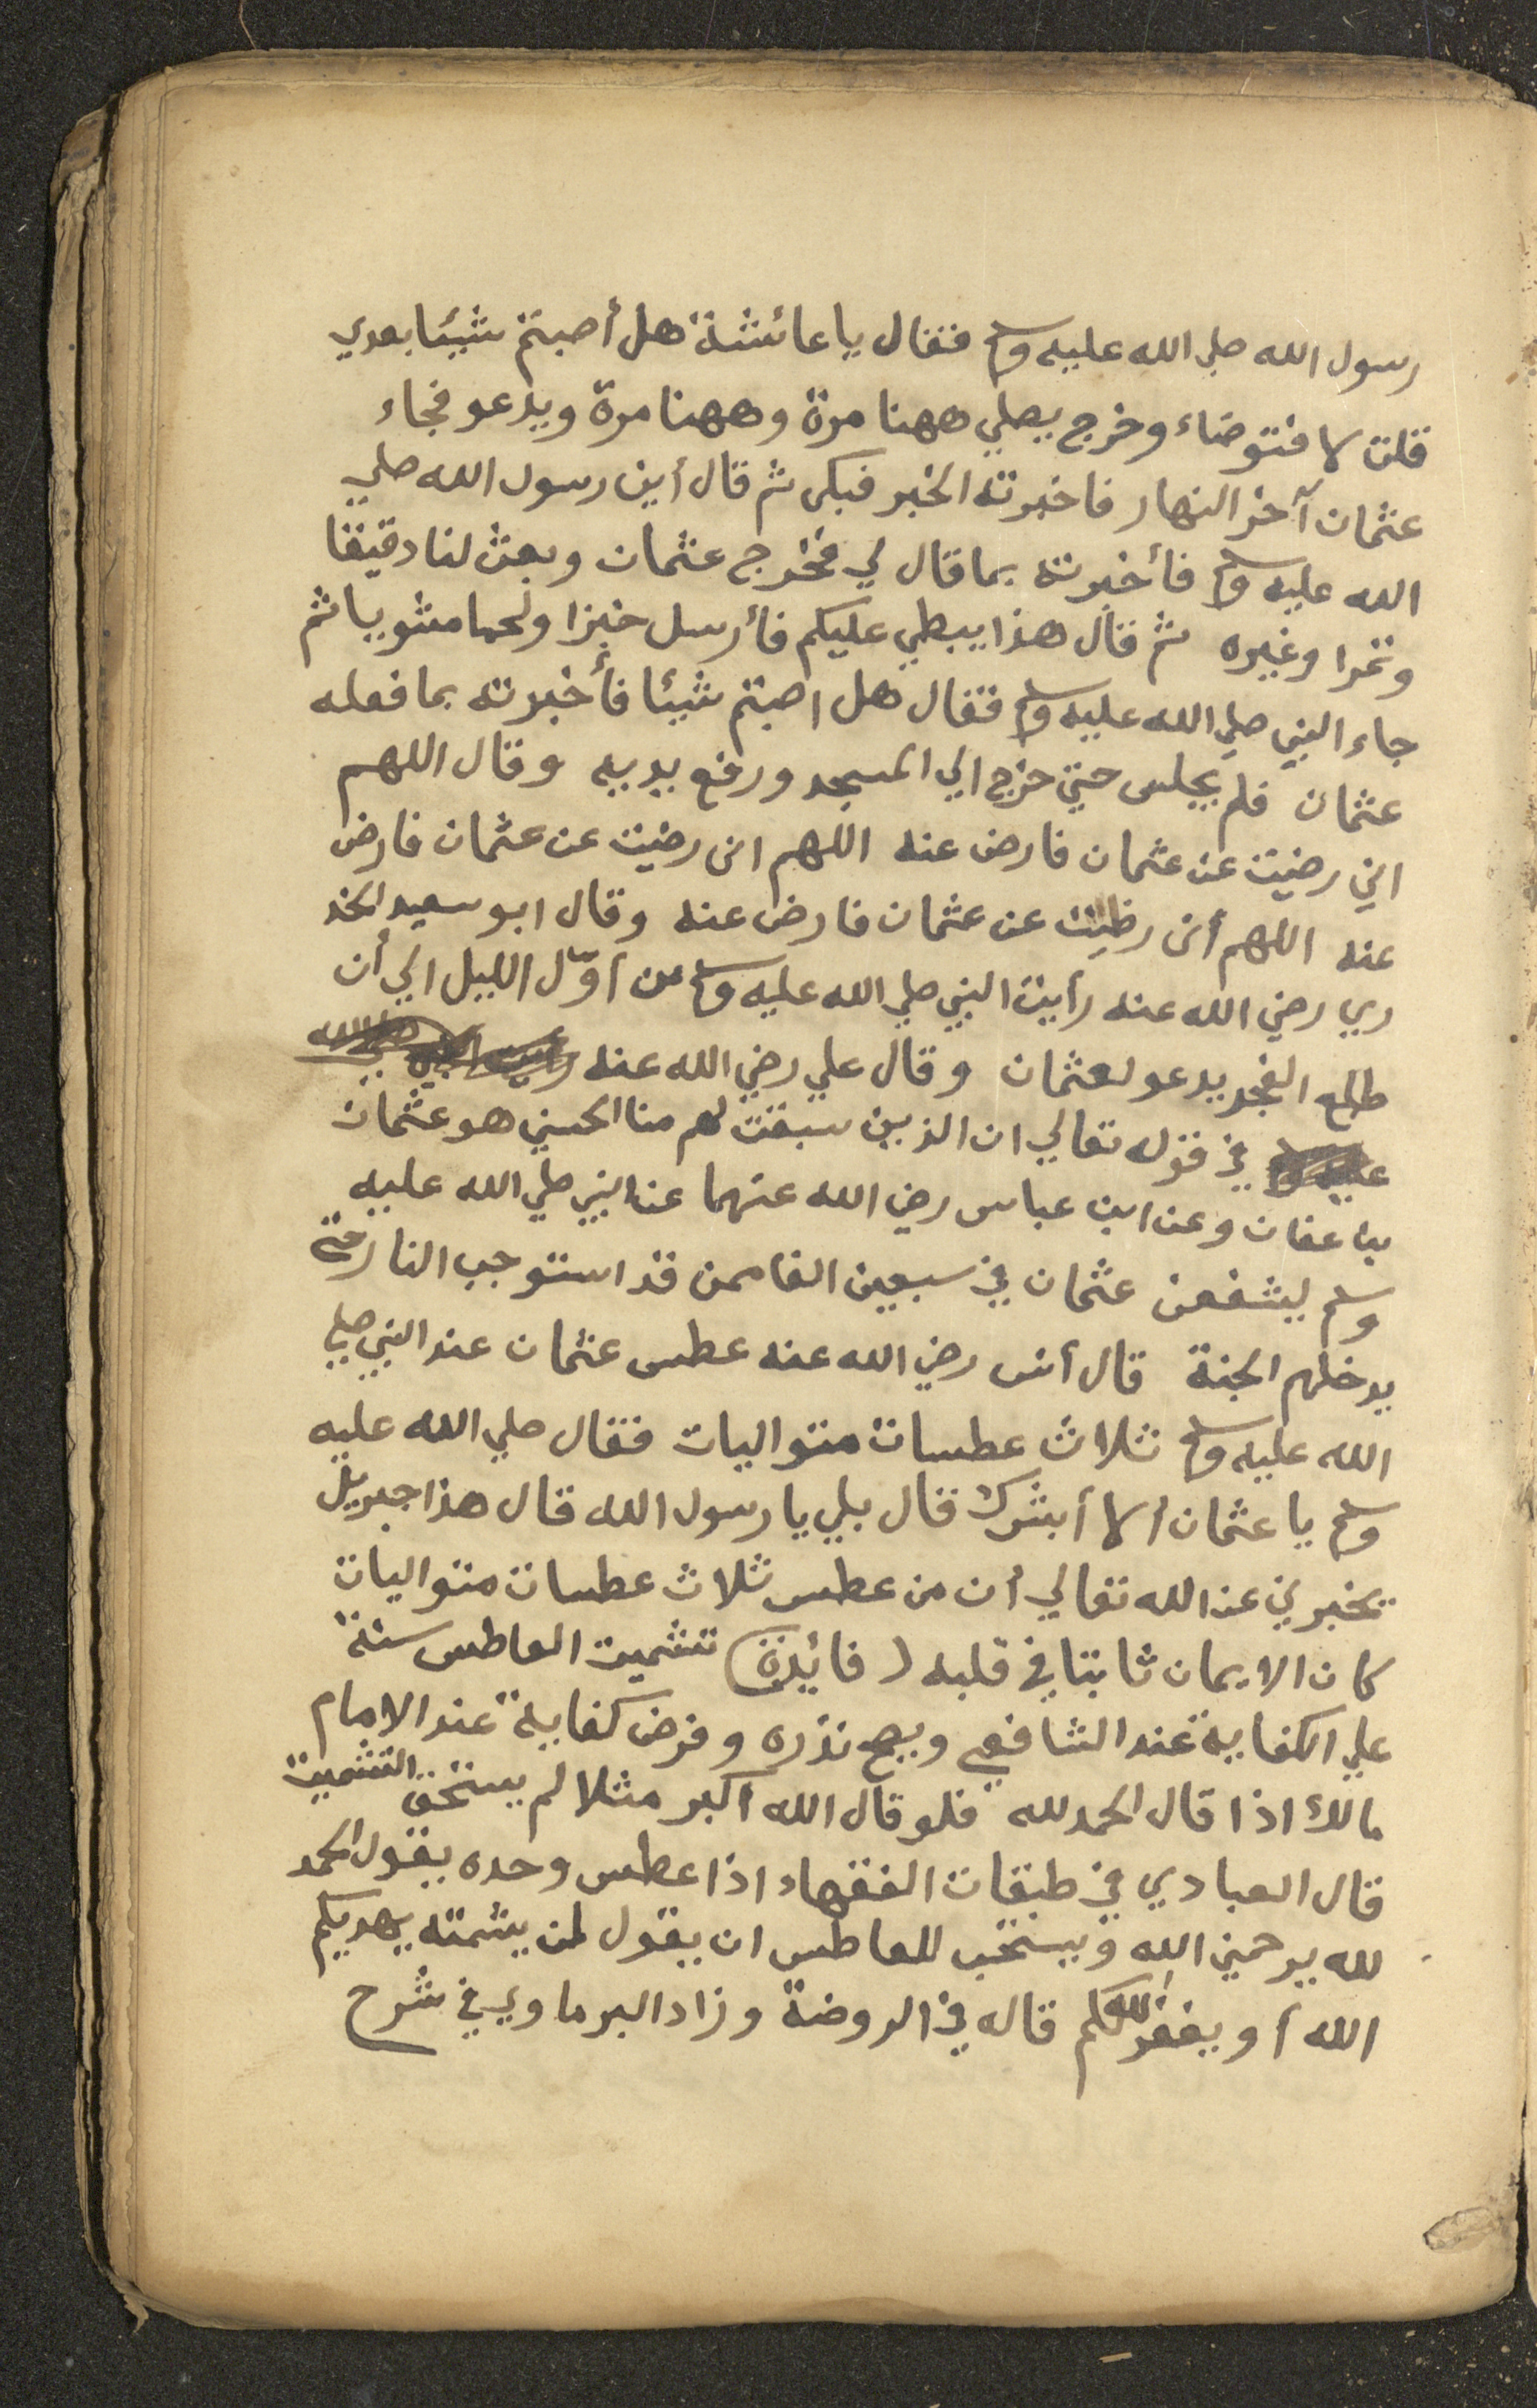 رسول الله صلي الله عليه وسلم فقال يا عائشة هل أصبتم شيئا بعدي
قلت لا فتوضاء وخرج يصلي ههنا مرة وههنا مرة ويدعو فجاء
عثمان آخر النهار فاخبرته الخبر فبكى ثم قال أين رسول الله صلي
الله عليه وسلم فأخبرته بما قال لي فخرج عثمان وبعث لنا دقيقا
وتمرا وغيره ثم قال هذا يبطي عليكم فأرسل خبزا ولحما مشويا ثم
جاء النبي صلي الله عليه وسلم فقال هل اصبتم شيئا فأخبرته بما فعله
عثمان فلم يجلس حتي خرج الي المسجد ورفع يديه وقال اللهم
اني رضيت عن عثمان فارض عنه اللهم انى رضيت عن عثمان فارض
عنه اللهم أنى رضيت عن عثمان فارض عنه وقال ابو سعيد الخد
ري رضي الله عنه رأيت النبي صلي الله عليه وسلم من أوّل الليل الي أن
طلع الفجر يدعو لعثمان وقال علي رضي الله عنه رأيت النبي صلي الله
عليه وسلم في قوله تعالي ان الذين سبقت لهم منا الحسني هو عثمان
بن عفان وعن ابن عباس رضي الله عنهما عن النبي صلي الله عليه
وسلم ليشفعن عثمان في سبعين الفا ممن قد استوجب النار حتى
يدخلهم الجنة قال أنس رضي الله عنه عطس عثمان عند النبي صلي
الله عليه وسلم ثلاث عطسات متواليات فقال صلي الله عليه
وسلم يا عثمان ألا أبشرك قال بلي يا رسول الله قال هذا جبريل
يخبرني عن الله تعالي أن من عطس ثلاث عطسات متواليات
كان الايمان ثابتا في قلبه (فائدة) تشميت العاطس سنة
علي الكفاية عند الشافعي ويصح نذره وفرض كفاية عند الامام
مالك اذا قال الحمد لله فلو قال الله أكبر مثلا لم يستحق التشميت
قال العبادي في طبقات الفقهاء اذا عطس وحده يقول الحمد
لله يرحمني الله ويستحب للعاطس ان يقول لمن يشمته يهديكم
الله أو يغفر الله لكم قاله في الروضة وزاد البرماوي في شرح